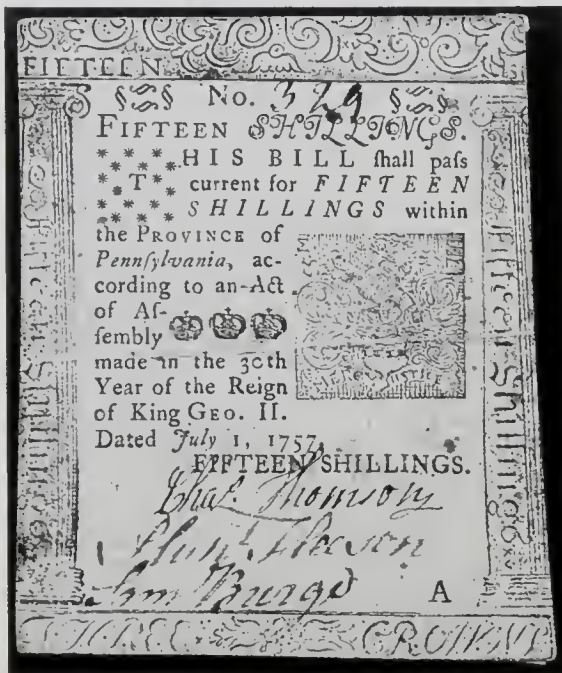 FIFTEEN
No. 329
FIFTEEN SHILLINGS.
THIS BILL ſhall paſs
current for FIFTEEN
SHILLINGS within
the PROVINCE of
Pennſylvania, ac-
cording to an Act
of Aſ-
ſembly
made in the 30th
Year of the Reign
of King GEO. II.
Dated July 1, 1757.
FIFTEEN SHILLINGS.
Chaˢ. Thomson
Plunᵗ. Fleeson
Sam Burge
A
THREE CROWNS
Fifteen Shillings
Fifteen Shillings